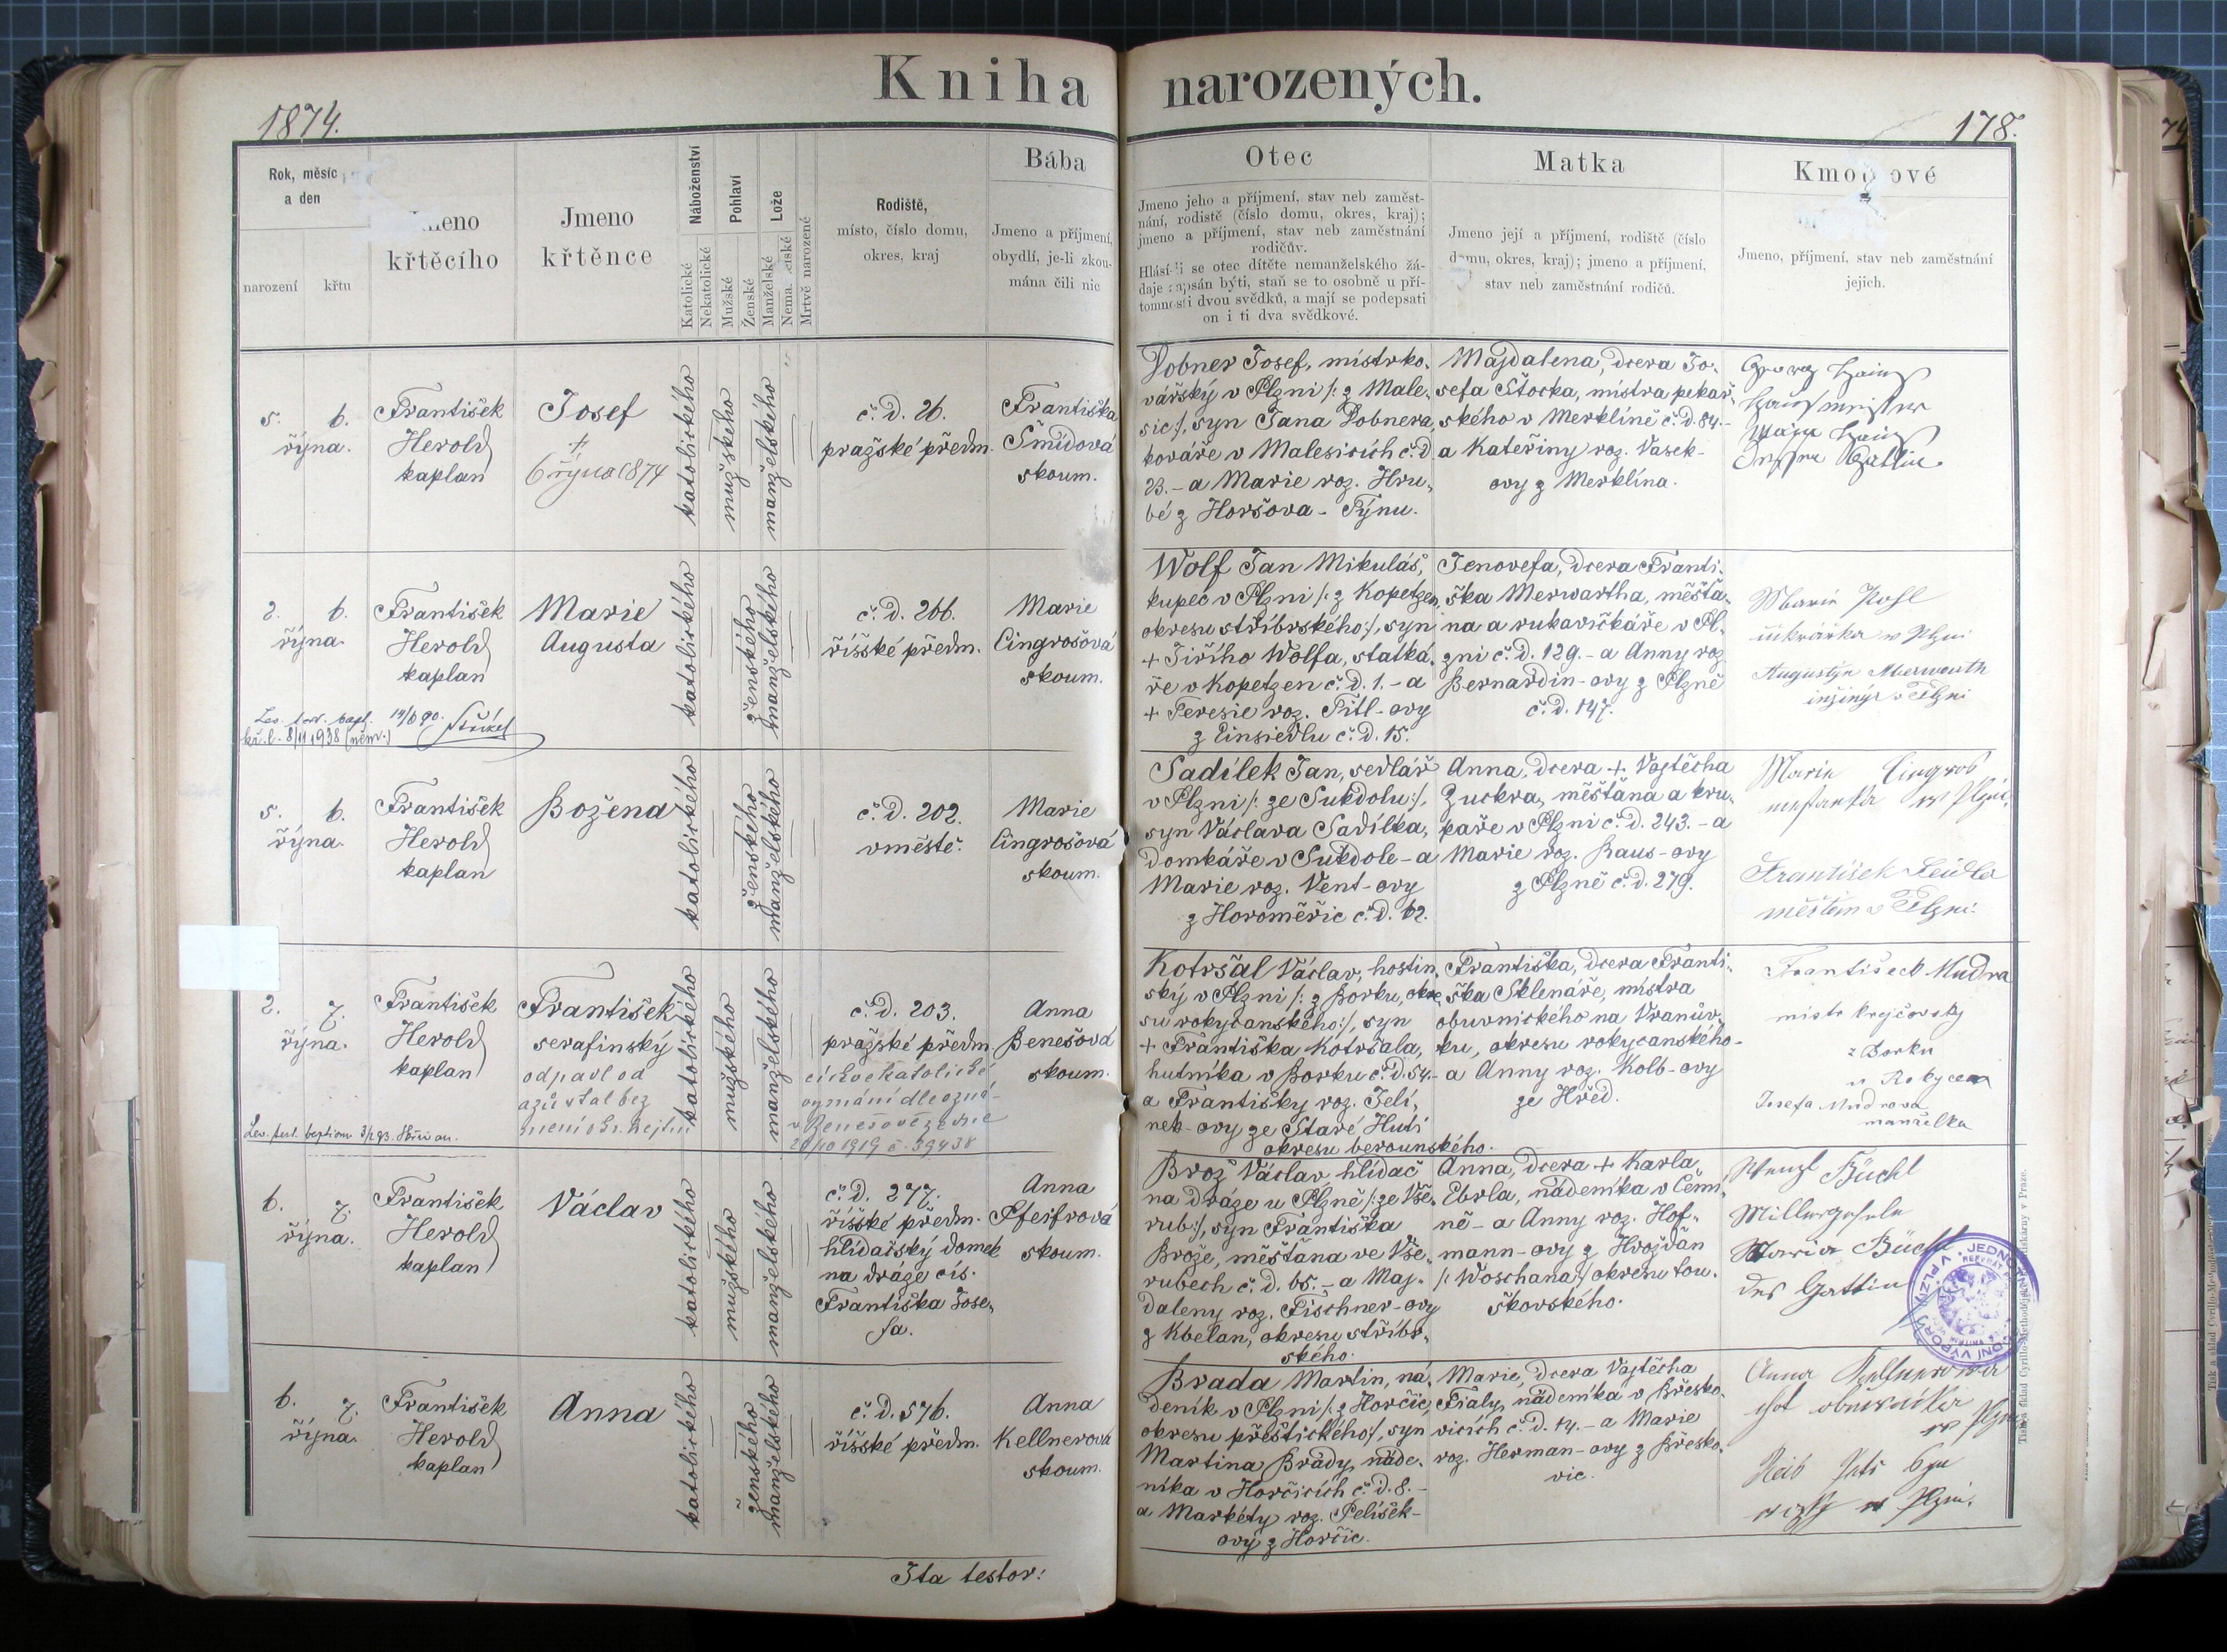 Kniha narozených.
1874.
178.
Rok, měsíc
a den
narození
křtu
meno
křtěcího
Jmeno
křtěnce
Náboženství
Katolické
Nekatolické
Pohlaví
Mužské
Ženské
Lože
Manželské
Mrtvě narozené
Rodiště,
místo, číslo domu,
okres, kraj
Bába
Jmeno a příjmení,
obydlí, je-li zkou-
mána čili nic
Otec
Jmeno jeho a příjmení, stav neb zaměst-
nání, rodistě (číslo domu, okres, kraj);
jmeno a příjmení, stav neb zaměstnání
rodičův.
Hlásí-li se otec dítěte nemanželského žá-
daje zapsán býti, staň se to osobně u pří-
tomnosti dvou svědků, a mají se podepsati
on i ti dva svědkové.
Matka
Jmeno její a příjmení, rodiště (číslo
domu, okres, kraj); jmeno a příjmení,
stav neb zaměstnání rodičů.
Kmo ové
Jmeno, příjmení, stav neb zaměstnání
jejich.
5. 6.
října.
František
Herold
kaplan
Josef
+
6 října 1874
katolického
mužského
manželského
č. d. 26.
pražské předm.
Františka
Šmídová
skoum.
Dobner Josef, mistr ko-
vářský v Plzni /: z Male-
sic:/, syn Jana Dobnera,
kováře v Malesicích č. d.
23. - a Marie roz. Hru-
bé z Horšova-Týnu.
Majdalena, dcera Jo-
sefa Štocka, mistra pekař-
ského v Merklíně č. d. 84. -
a Kateřiny roz. Vasek-
ovy z Merklína.
2. 6.
října.
František
Herold
kaplan
Marie
Augusta
katolického
ženského
manželského
č. d. 266.
říšské předm.
Marie
Cingrošová
skoum.
14/6 90.
kř. l. 8/11 1938 (něm.)
Wolf Jan Mikuláš,
kupec v Plzni /: z Kopetzen,
okresu stříbrského:/, syn
+ Jiřího Wolfa, statká-
ře v Kopetzen č. d. 1. - a
+ Teresie roz. Pitl-ovy
z Einsiedlu č. d. 15.
Jenovefa, dcera Franti-
ška Merwartha, měšťa-
na a rukavičkáře v Pl-
zni č. d. 129. - a Anny roz.
Bernardin-ovy z Plzně
č. d. 147.
v Plzni
Augustýn Merwarth
inžinýr v Plzni
5. 6.
října.
František
Herold
kaplan
Božena
katolického
ženského
manželského
č. d. 202.
v městě.
Marie
Cingrošová
skoum.
Sadílek Jan, sedlář
v Plzni /: ze Sukdolu:/,
syn Václava Sadílka,
domkáře v Sukdole - a
Marie roz. Vent-ovy
z Horoměřic č. d. 62.
Anna, dcera + Vojtěcha
Zuckra, měšťana a kru-
paře v Plzni č. d. 243. - a
Marie roz. Kraus-ovy
z Plzně č. d. 279.
Marie Cingroš
v Plzni.
František
měšťan v Plzni.
2. 7.
října.
František
Herold
kaplan
František
serafinský
odpadl od
a zůstal bez
katolického
mužského
manželského
č. d. 203.
pražské předm.
církve katolické
vyznání dle ozná-
20/10 1919 č. 39438
Anna
Benešová
skoum.
Kotršal Václav, hostin-
ský v Plzni /: z Borku, okre-
su rokycanského:/, syn
+ Františka Kotršala,
hutníka v Borku č. d. 54. -
a Františky roz. Jelí-
nek-ovy ze Staré Huti
okresu berounského.
Františka, dcera Franti-
ška Sklenáře, mistra
obuvnického na Vranův-
ku, okresu rokycanského -
a Anny roz. Kolb-ovy
ze Hřed.
František Mudra
mistr krejčovský
z Borku
u Rokycan
Josefa Mudrova
manželka
6. 7.
října.
František
Herold
kaplan
Václav
katolického
mužského
manželského
č. d. 277.
říšské předm.
hlídačský domek
na dráze cís.
Františka Jose-
fa.
Anna
Pfeifrová
skoum.
Brož Václav, hlídač
na dráze u Plzně /: ze Vše-
rub:/, syn Františka
Brože, měšťana ve Vše-
rubech č. d. 65. - a Maj-
daleny roz. Tischner-ovy
z Kbelan, okresu stříbr-
ského.
Anna, dcera + Karla
Ebrla, nádeníka v Cemi-
ně - a Anny roz. Hof-
mann-ovy z Hvožďan
/: Woschana:/ okresu tou-
škovského.
Wenzl Büchl
Maria Büchl
des Gattin
6. 7.
října.
František
Herold
kaplan
Anna
katolického
ženského
manželského
č. d. 576.
říšské předm.
Anna
Kellnerová
skoum.
Brada Martin, ná-
deník v Plzni /: z Horčic,
okresu přeštického:/, syn
Martina Brady, náde-
níka v Horčicích č. d. 8. -
a Markéty roz. Pelíšek-
ovy z Horčic.
Marie, dcera Vojtěcha
Fialy, nádeníka v Břesko-
vicích č. d. 14. - a Marie
roz. Herman-ovy z Břesko-
vic.
Anna
v Plzni.
Ita testor: